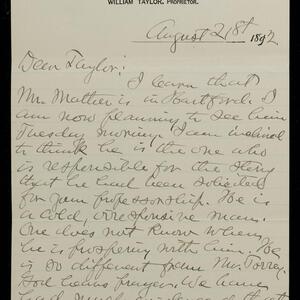 WILLIAM TAYLOR, PROPRIETOR.
August 21st 1892
Dear Taylor:
I learn that
Mr. Mather is in Hartford. I
am now planning to see him
Tuesday morning. I am inclined
to think he is the one who
is responsible for the story
that he had been solicited
for your professorship. He is
a cold, irresponsive man.
One does not know where
he is prospering with him. He
is so different from Mr. Torrey.
God hears prayer. We have
had much evidence of that